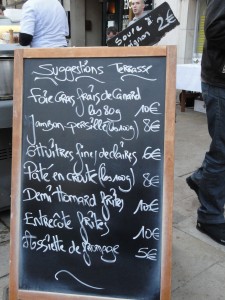 Soupe à
l'oignon 2€
Suggestions Terrasse
Foie Gras frais de Canard
(60/80g) 10€
Jambon persillé (60/100g) 8€
6 Huîtres fines de claires 6€
Pâté en croûte (60/100g) 8€
Demi Homard frites 10€
Entrecôte frites 10€
Assiette de fromage 5€